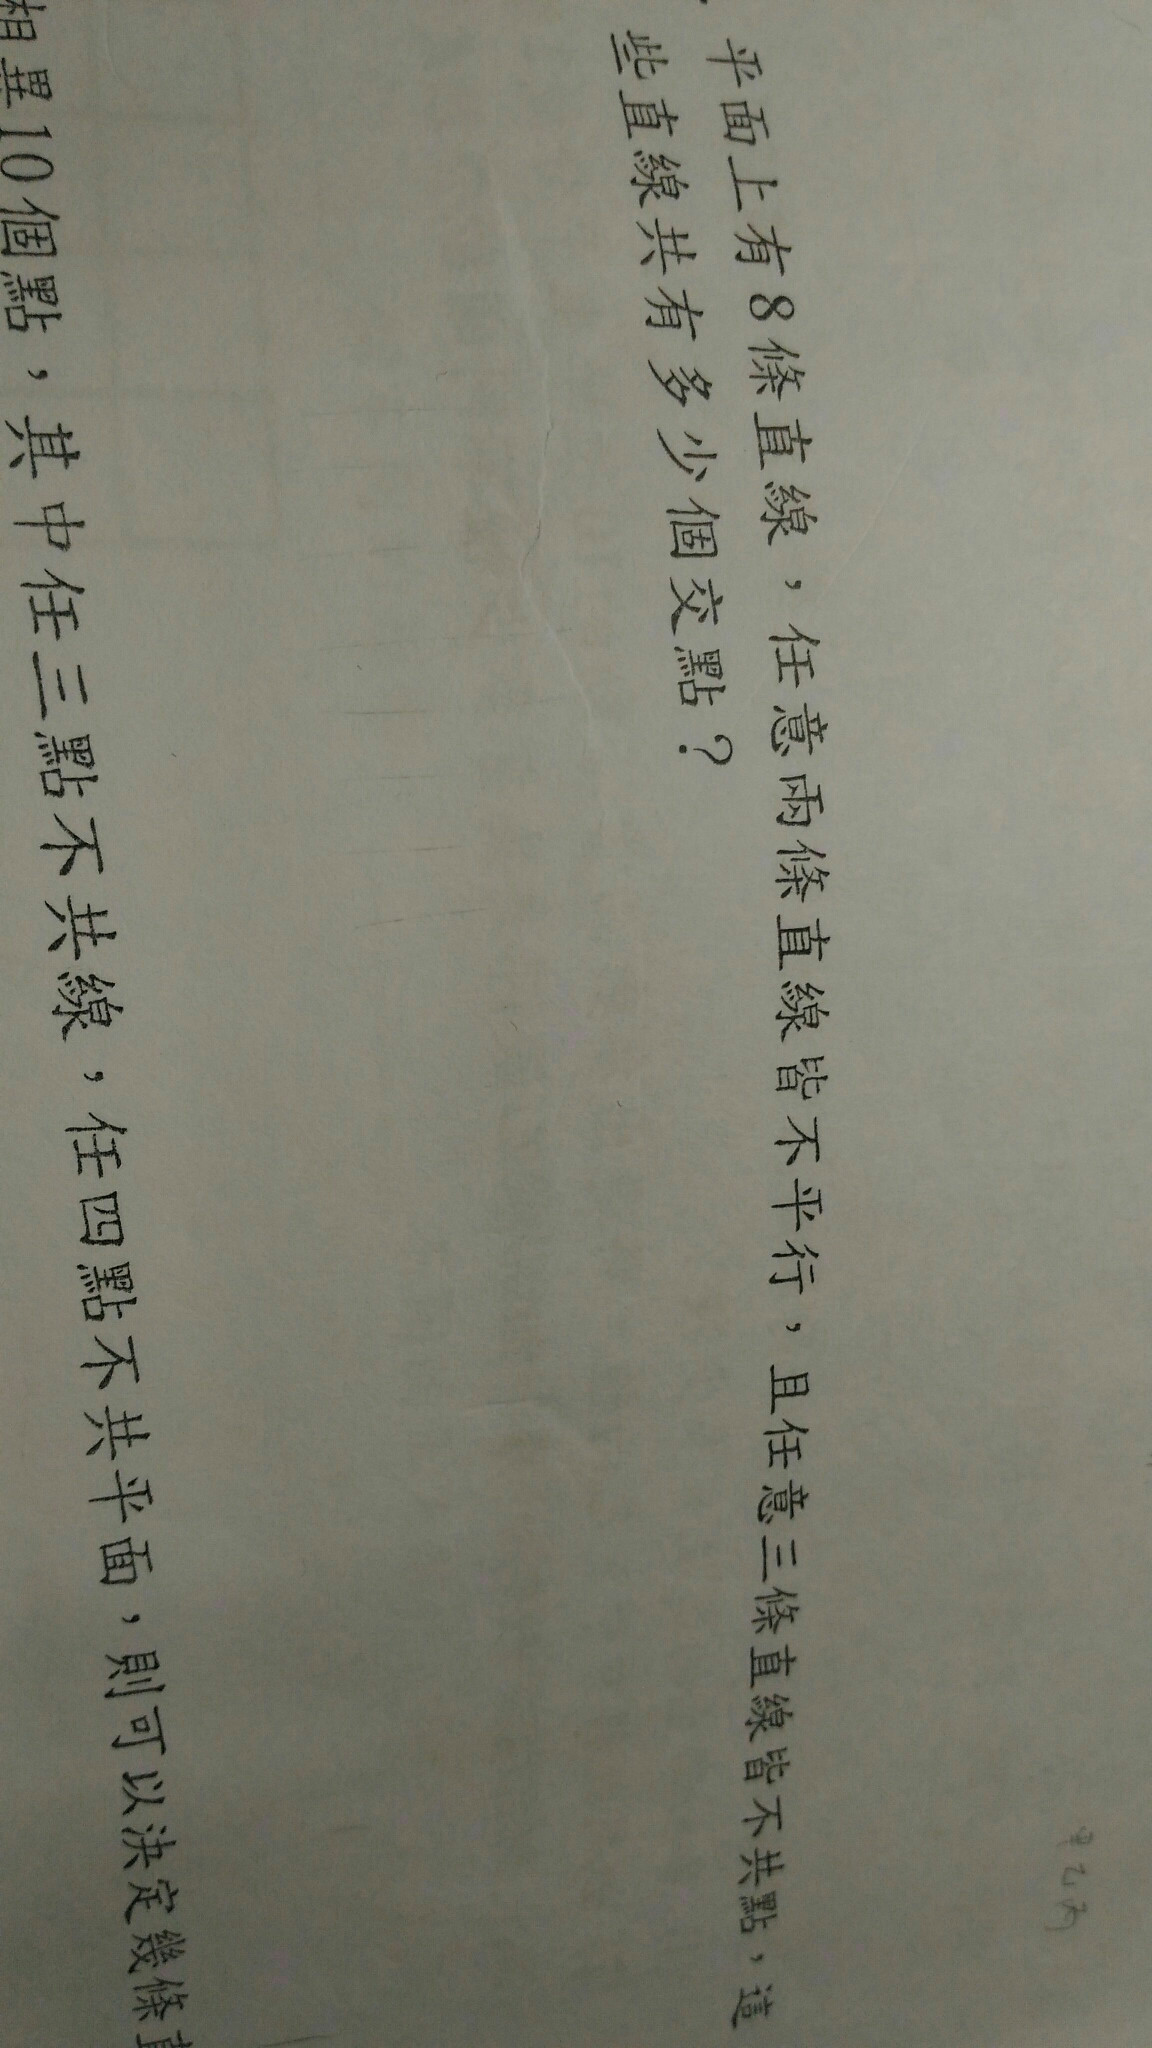 甲乙丙
平面上有8條直線，任意兩條直線皆不平行，且任意三條直線皆不共點，這
些直線共有多少個交點？
相異10個點，其中任三點不共線，任四點不共平面，則可以決定幾條直